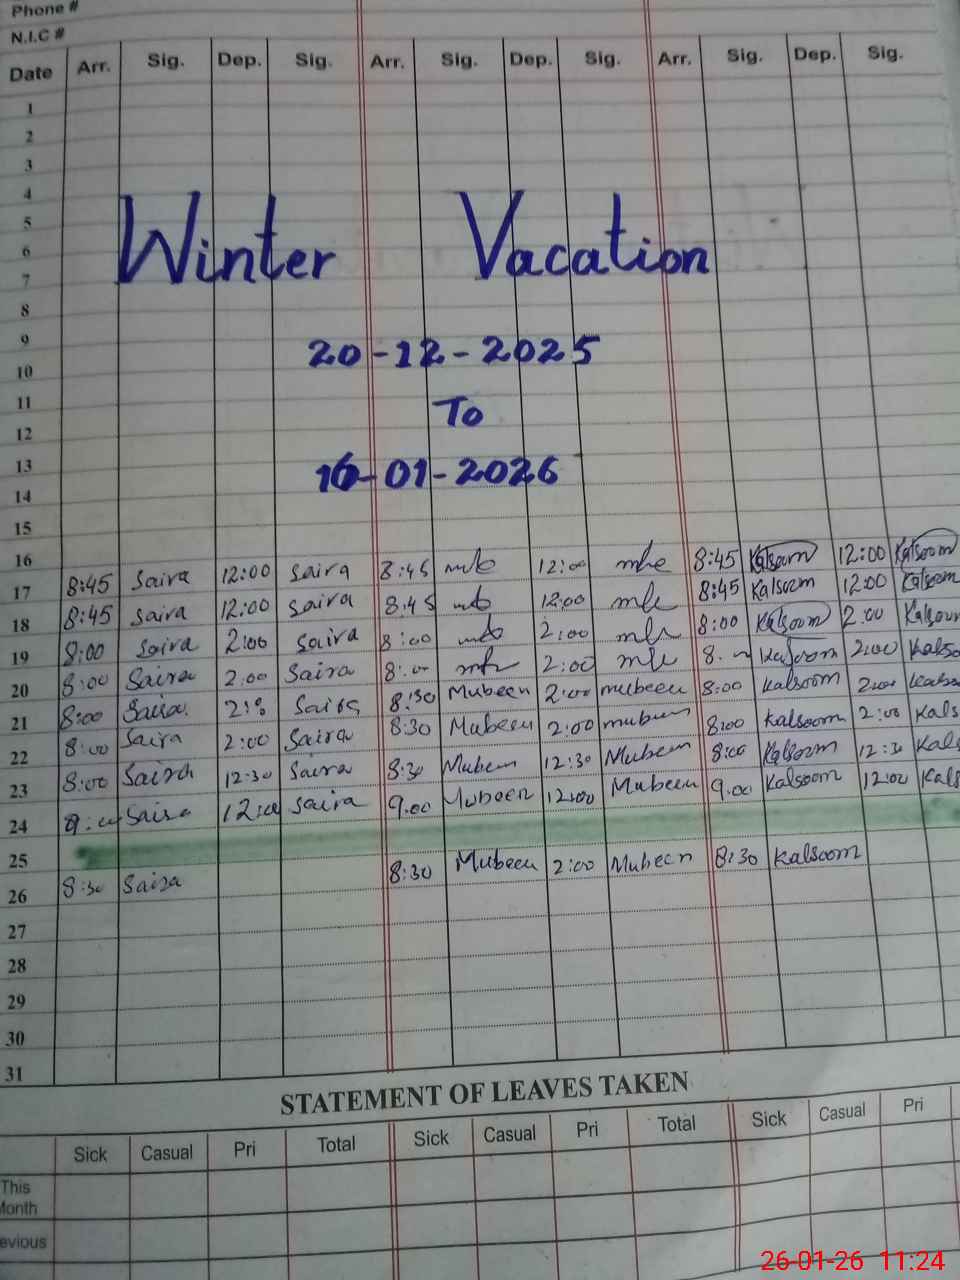 Phone #
N.I.C #
Date Arr. Sig. Dep. Sig. Arr. Sig. Dep. Sig. Arr. Sig. Dep. Sig.
1
2
3
4
5
Winter Vacation
6
7
8
9
20-12-2025
10
11
To
12
13
16-01-2026
14
15
16
8:45 Saira 12:00 Saira 8:45 12:00 8:45 Kalsoom 12:00 Kalsoom
17
8:45 Saira 12:00 Saira 8:45 12:00 8:45 Kalsoom 12:00 Kalsoom
18
8:00 Saira 2:00 Saira 8:00 2:00 8:00 Kalsoom 2:00 Kalsoom
19
8:00 Saira 2:00 Saira 2:00 Kalsoom 2:00 Kalso
20
8:00 Saira Saira 8:30 Mubeen 2:00 mubeen 8:00 Kalsoom 2:00
21
8:00 Saira 2:00 Saira 8:30 Mubeen 2:00 mubeen 8:00 Kalsoom 2:00 Kals
22
8:00 Saira 12:30 Saira 8:30 Mubeen 12:30 Mubeen 8:00 Kalsoom 12:30 Kals
23
Saira 12:00 Saira 9:00 Mubeen 12:00 Mubeen 9:00 Kalsoom 12:00 Kals
24
25
8:30 Saira 8:30 Mubeen 2:00 Mubeen 8:30 Kalsoom
26
27
28
29
30
31
STATEMENT OF LEAVES TAKEN
Sick Casual Pri Total Sick Casual Pri Total Sick Casual Pri
This
Month
evious
26-01-26 11:24